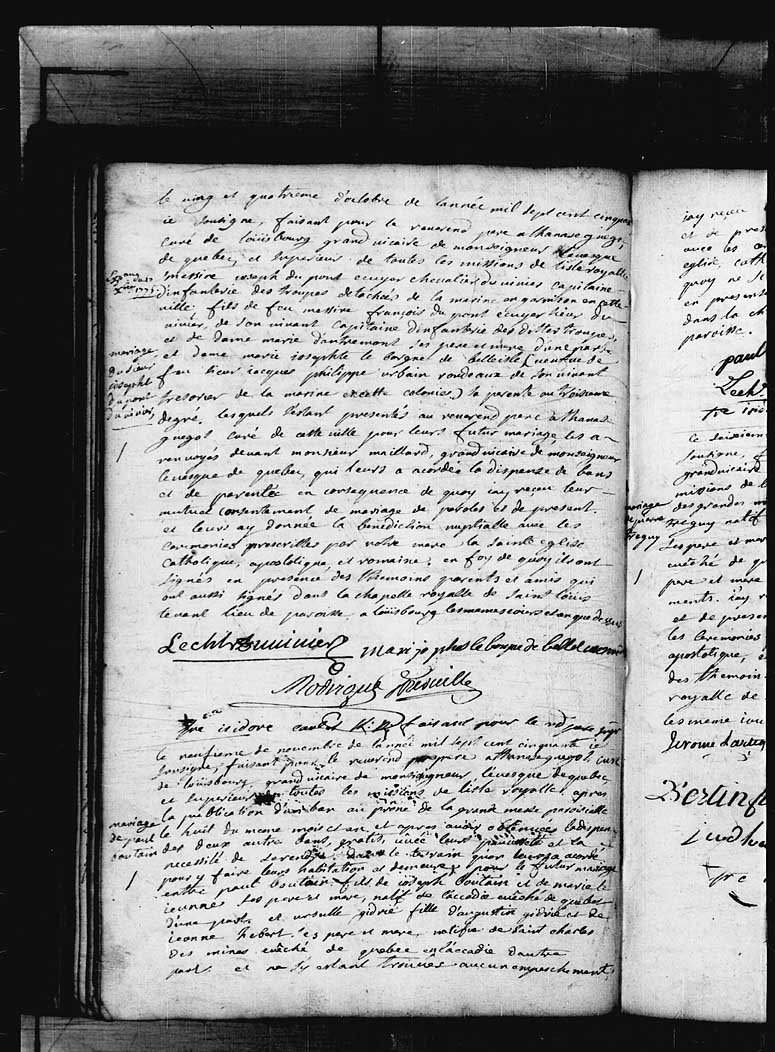 le vingt quatrieme d'octobre de l'année mil sept cent cinquan
ie sousigne, faisant pour le reverend pere athanase guegot
curé de loüisbourg grand vicaire de monseigneur levesque
de quebec, et superieur de toutes les missions de lisle royalle
messire joseph du pont ecuyer chevalier du vivier capitaine
d'infanterie des troupes detachées de la marine en garnison en cette
ville, fils de feu messire françois du pont ecuyer sieur du
vivier, de son vivant capitaine d'infanterie des dittes troupes,
et de dame marie d'antremont ses pere et mere d'une part
et dame marie iosephte le borgne de belleisle (veufue de
feu sieur jacques philippe urbain rondeaux de son vivant
tresorier de la marine en cette colonie,) sa parente au troisieme
degré, lesquels s'estant presentés au reverend pere athanas
guegot curé de cette ville pour leurs futur mariage, les a
renvoyés devant monsieur maillard, grand vicaire de monseigneur
levesque de quebec, qui leurs a acordée la dispense de bans
et de parentée en consequence de quoy iay receu leur
mutuel consentement de mariage de paroles de present.
et leurs ay donnée la benediction nuptialle avec les
ceremonies prescrittes par notre mere la sainte eglise
catholique, apostolique, et romaine; en foy de quoy ils ont
signés en presence des themoins parents et amis qui
ont aussi signés dans la chapelle royalle de saint louis
tenant lieu de paroisse, a loüisbourg les memes iours et an que dessus
mariage
du sieur
ioseph
du pont
duvivier
Lechl duvivier mari jo phes le borgne de bellele
Rodrigue
fre isidore caulet faisant pour le rd pere
le neufieme de novembre de l'année mil sept cent cinquante ie
sousigne, faisant pour le reverend pere athanase guegot, curé
de loüisbourg, grand vicaire de monseigneur levesque de quebec
et superieur en toutes les missions de lisle royalle, apres
la publication d'un ban au prône de la grande messe paroissialle
le huit du meme mois et an, et apres avoir obtenuës la dispense
des deux autre bans, gratis, avec leurs pauvreté et la
necessité de se rendre dans le terrain qu'on leurs a acordé
pour y faire leurs habitation et demeure, pour le futur mariage
entre paul boutain fils de ioseph boutain et de marie
ses pere et mere, natif de laccadie evêché de quebec
d'une part, et ursulle gidrie fille d'augustin gidrie et de
ieanne hebert, ses pere et mere, natifve de saint charles
des mines evêché de quebec en laccadie d'autre
part. et ne s'y estant trouvées aucun empeschement,
mariage
de paul
boutain
iay receu
et de pres
avec les ce
eglise, cath
quoy ne s
en presence
dans la ch
paroisse.
paul
Lechl
fre isid
le
sousigne, f
grand vicaire
missions de l
des grandes
treguy natif
ses pere et mer
evêché de q
pere et mere
ments. iay r
et de presen
les ceremonies
apostolique, e
des themoins
royalle de
les meme iou
mariage
de
treguy
Jerome
Bertin
fre